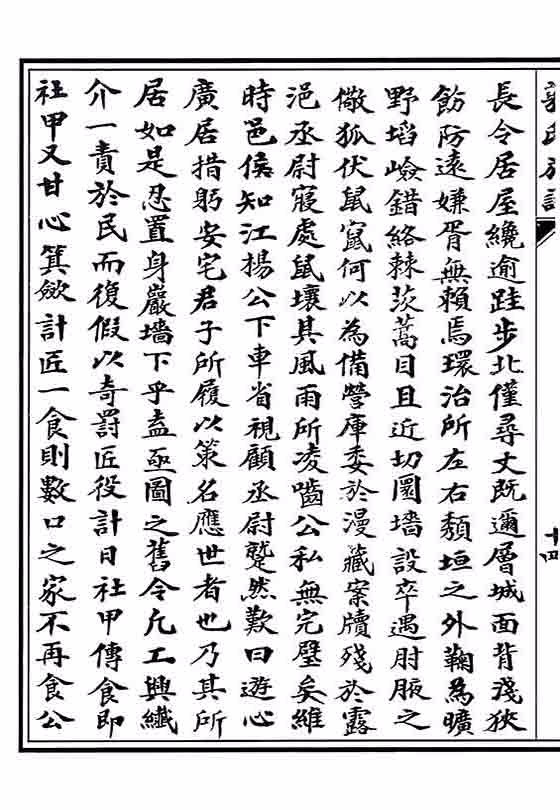 十四
長令居屋纔逾跬步北僅尋丈既邇層城面背淺狹
飭防遠嫌胥無賴焉環治所左右頹垣之外鞠為曠
野埳嶮錯絡棘茨蒿目且近切圜墻設卒遇肘腋之
儆狐伏鼠竄何以為備營庫委於漫藏案牘殘於露
浥丞尉寢處鼠壤其風雨所凌嚙公私無完壁矣維
時邑侯知江揚公下車省視顧丞尉蹵然歎曰遊心
廣居措躬安宅君子所履以策名應世者也乃其所
居如是忍置身巖墻下乎盍亟圖之舊令凢工興纖
介一責於民而復假以奇罰匠役計日社甲傳食即
社甲又甘心箕斂計匠一食則數口之家不再食公